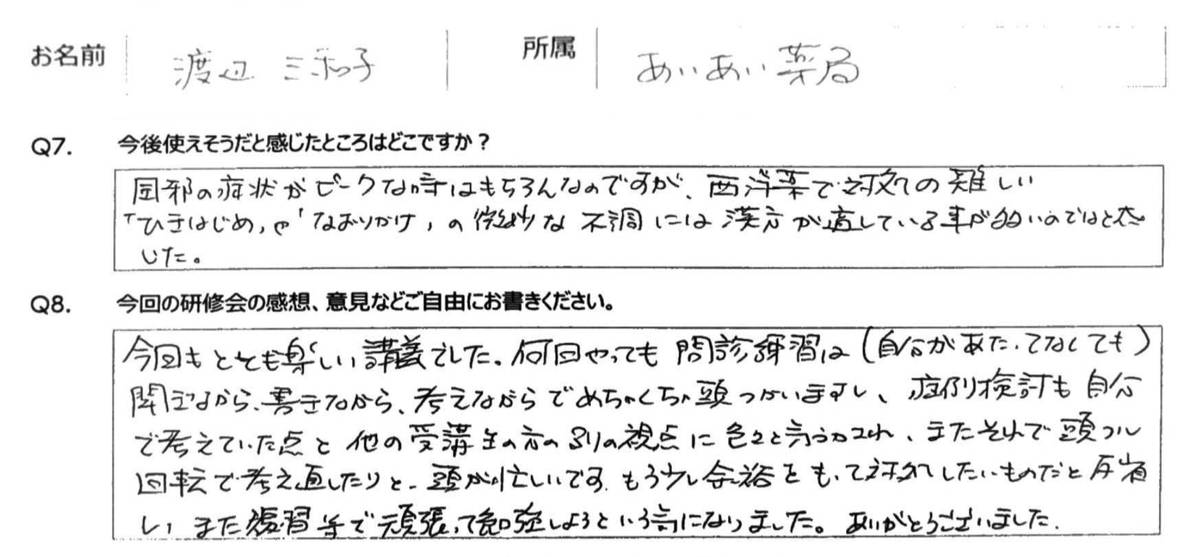 お名前 渡辺 三和子 所属 あいあい薬局
Q7. 今後使えそうだと感じたところはどこですか？
風邪の症状がピークな時はもちろんなのですが、西洋薬で対処の難しい
「ひきはじめ」や「なおりかけ」の微妙な不調には漢方が適している事が多いのではと感
じた。
Q8. 今回の研修会の感想、意見などご自由にお書きください。
今回もとても楽しい講義でした。何回やっても問診練習は(自分があたってなくても)
聞きながら、書きながら、考えながらでめちゃくちゃ頭つかいますし、症例検討も自分
で考えていた点と他の受講生の方の別の視点に色々と気づかされ、またそれで頭フル
回転で考え直したりと、頭が忙しいです。もう少し余裕をもって対処したいものだと反省
し、また復習等で頑張って勉強しようという気になりました。ありがとうございました。